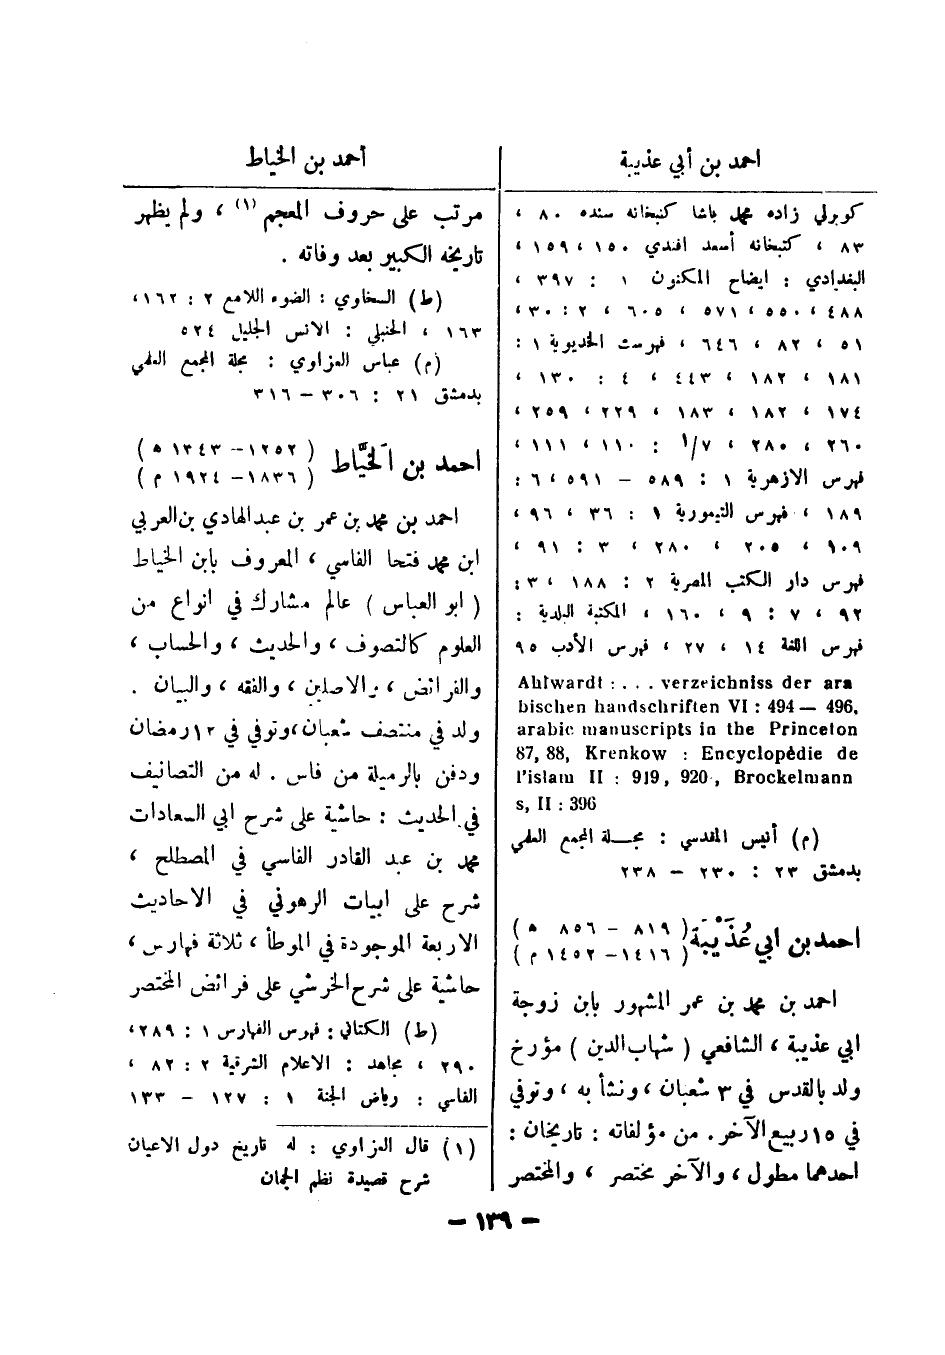 احمد بن أبي عذيبة
كوبرلي زاده محمد باشا كتبخانه سنده ٨٠ ،
٨٣ ، كتبخانه أسعد افندي ١٥٠ ، ١٥٩ ،
البغدادي : ايضاح المكنون ١ : ٣٩٧ ،
٤٨٨ ، ٥٥٠ ، ٥٧١ ، ٦٠٥ ، ٢ : ٣٠ ،
٥١ ، ٨٢ ، ٦٤٦ ، فهرست الخديوية ١ :
١٨١ ، ١٨٢ ، ٤٤٣ ، ٤ : ١٣٠ ،
١٧٤ ، ١٨٢ ، ١٨٣ ، ٢٢٩ ، ٢٥٩ ،
٢٦٠ ، ٢٨٠ ، ١/٧ : ١١٠ ، ١١١ ،
فهرس الازهرية ١ : ٥٨٩ – ٥٩١ ، ٦ :
١٨٩ ، فهرس التيمورية ١ : ٣٦ ، ٩٦ ،
١٠٩ ، ٢٠٥ ، ٢٨٠ ، ٣ : ٩١ ،
فهرس دار الكتب المصرية ٢ : ١٨٨ ، ٣ :
٩٢ ، ٧ : ٩ ، ١٦٠ ، المكتبة البلدية :
فهرس اللغة ١٤ ، ٢٧ ، فهرس الأدب ٩٥
Ahlwardt : . . . verzeichniss der ara
bischen handschriften VI : 494 — 496,
arabic manuscripts in the Princeton
87, 88, Krenkow : Encyclopédie de
l'islam II : 919, 920 , Brockelmann
s, II : 396
(م) أنيس المقدسي : مجلة المجمع العلمي
بدمشق ٢٣ : ٢٣٠ – ٢٣٨
احمد بن ابي عُذَيْبَة ( ٨١٩ – ٨٥٦ ه )
( ١٤١٦ – ١٤٥٢ م )
احمد بن محمد بن عمر المشهور بابن زوجة
ابي عذيبة ، الشافعي ( شهاب الدين ) مؤرخ
ولد بالقدس في ٣ شعبان ، ونشأ به ، وتوفي
في ١٥ ربيع الآخر . من مؤلفاته : تاريخان :
احدهما مطول ، والآخر مختصر ، والمختصر
أحمد بن الخياط
مرتب على حروف المعجم (١) ، ولم يظهر
تاريخه الكبير بعد وفاته .
(ط) السخاوي : الضوء اللامع ٢ : ١٦٢ ،
١٦٣ ، الحنبلي : الانس الجليل ٥٢٤
(م) عباس العزاوي : مجلة المجمع العلمي
بدمشق ٢١ : ٣٠٦ – ٣١٦
احمد بن الخَيَّاط ( ١٢٥٢ – ١٣٤٣ ه )
( ١٨٣٦ – ١٩٢٤ م )
احمد بن محمد بن عمر بن عبد الهادي بن العربي
ابن محمد فتحا الفاسي ، المعروف بابن الخياط
( ابو العباس ) عالم مشارك في انواع من
العلوم كالتصوف ، والحديث ، والحساب ،
والفرائض ، والاصلين ، والفقه ، والبيان .
ولد في منتصف شعبان ، وتوفي في ١٢ رمضان
ودفن بالرميلة من فاس . له من التصانيف
في الحديث : حاشية على شرح ابي السعادات
محمد بن عبد القادر الفاسي في المصطلح ،
شرح على ابيات الرهوني في الاحاديث
الاربعة الموجودة في الموطأ ، ثلاثة فهارس ،
حاشية على شرح الخرشي على فرائض المختصر
(ط) الكتاني : فهرس الفهارس ١ : ٢٨٩ ،
٢٩٠ ، مجاهد : الاعلام الشرقية ٢ : ٨٢ ،
الفاسي : رياض الجنة ١ : ١٢٧ – ١٣٣
(١) قال العزاوي : له تاريخ دول الاعيان
شرح قصيدة نظم الجمان
– ١٣٩ –